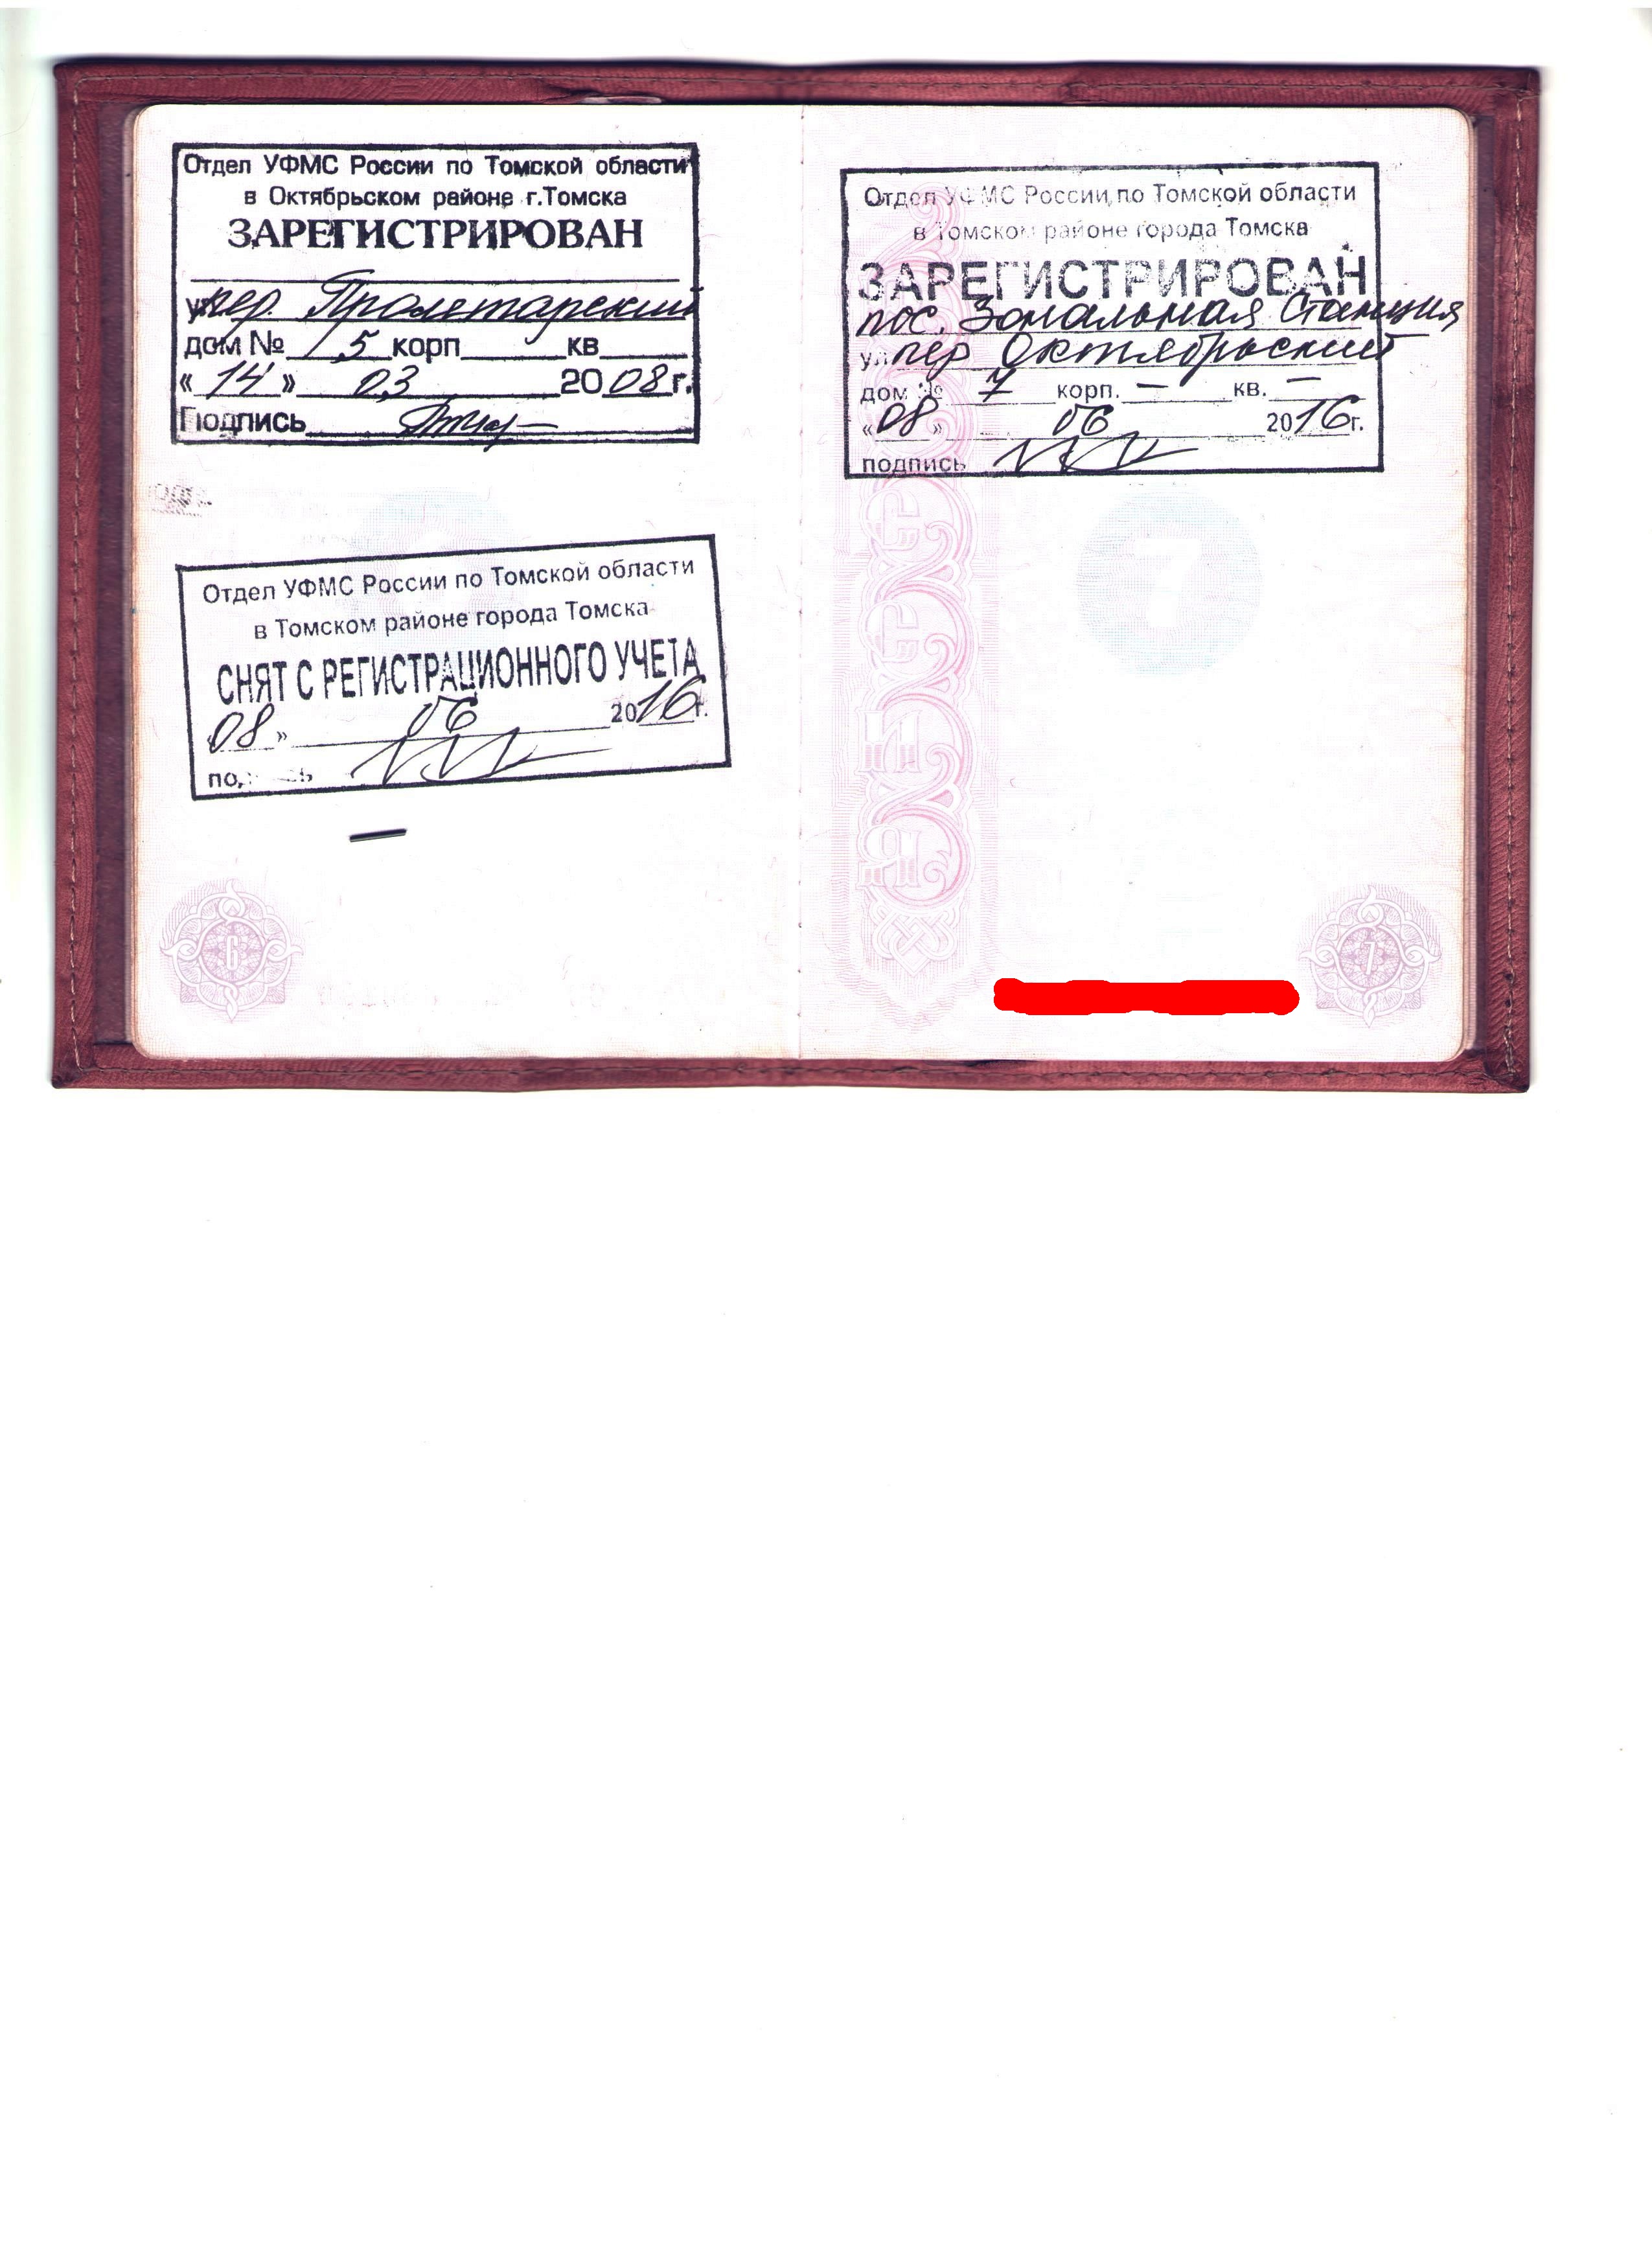 Отдел УФМС России по Томской области
в Октябрьском районе г.Томска
ЗАРЕГИСТРИРОВАН
ул. пер. Пролетарский
дом № 5 корп кв
« 14 » 03 2008 г.
Подпись
Отдел УФМС России по Томской области
в Томском районе города Томска
СНЯТ С РЕГИСТРАЦИОННОГО УЧЕТА
«08» 06 2016 г.
подпись
6
Отдел УФМС России по Томской области
в Томском районе города Томска
ЗАРЕГИСТРИРОВАН
пос. Зональная Станция
ул. пер Октябрьский
дом № 7 корп. — кв. —
«08» 06 2016 г.
подпись
7
7